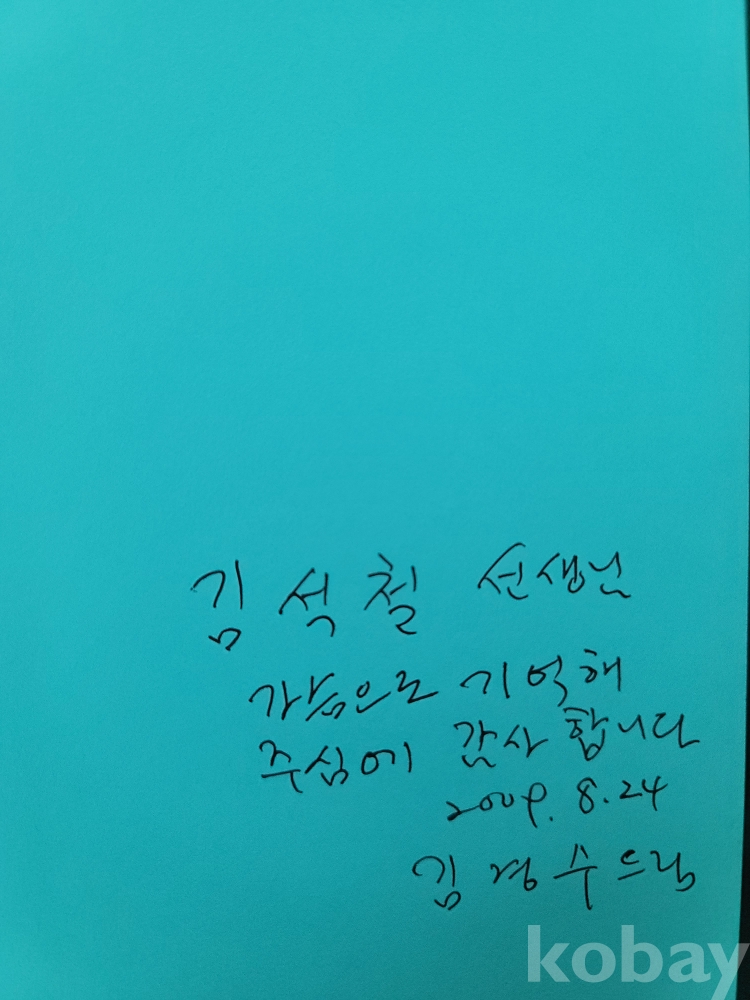 김석철 선생님
가슴으로 기억해
주심에 감사합니다
2009. 8.24
김경수 드림
kobay